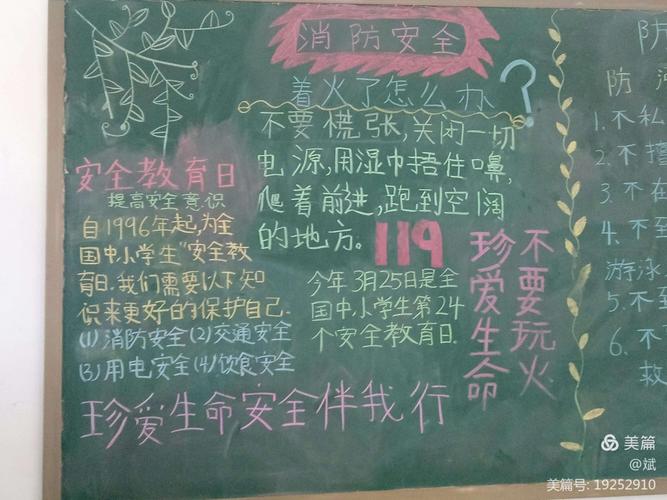 消防安全
着火了怎么办?
不要慌张,关闭一切
电源,用湿巾捂住口鼻,
爬着前进,跑到空阔
的地方。
119
安全教育日
提高安全意识
自1996年起,为全
国中小学生“安全教
育日.我们需要以下知
识来更好的保护自己.
(1)消防安全(2)交通安全
(3)用电安全(4)饮食安全
今年3月25日是全
国中小学生第24
个安全教育日.
不要玩火
珍爱生命
珍爱生命安全伴我行
防
防
1.不私
2.不
3.不在
4.不到
游泳
5.不
6.不
救
美篇
@斌
美篇号:19252910